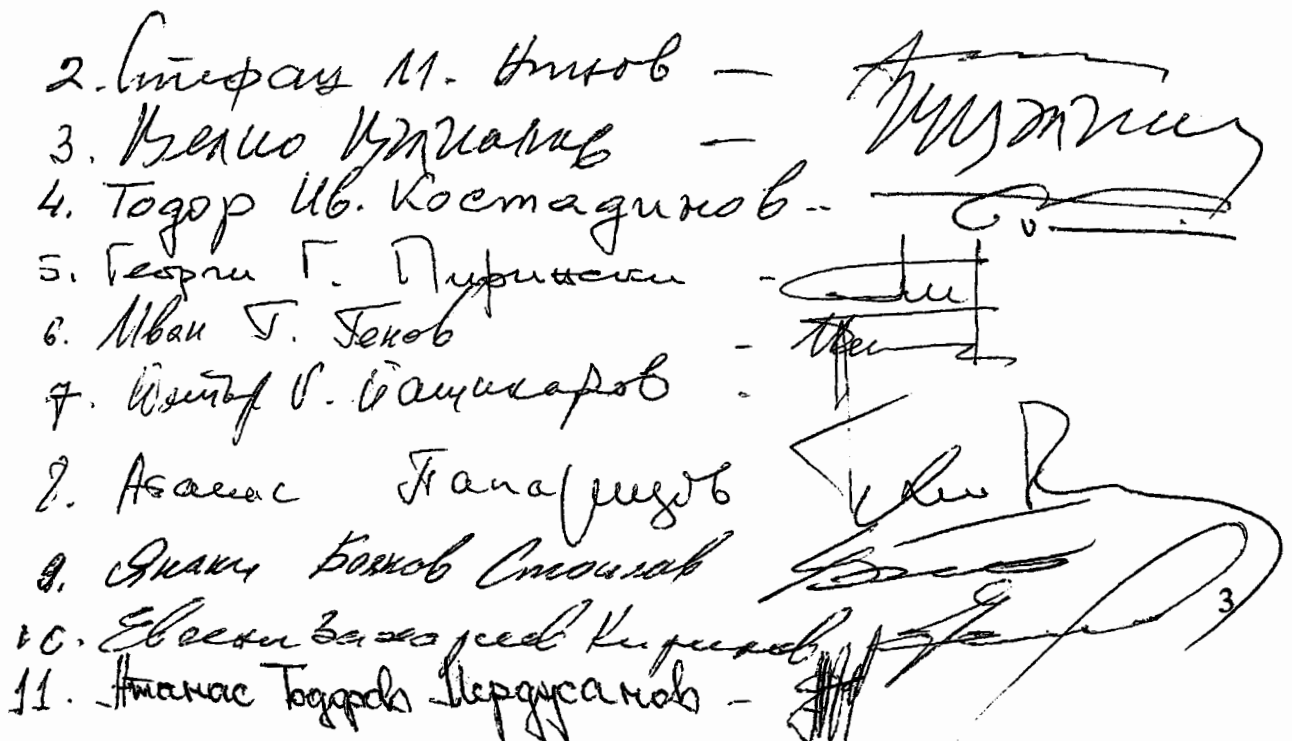 2. Стефан М. Нинов –
3. Велко Вълканов –
4. Тодор Ив. Костадинов -
5. Георги Г. Пирински -
6. Иван Г. Генов -
7. Петър И. Башикаров -
8. Атанас Папаризов
9. Янаки Боянов Стоилов
10. Евгени Захариев Кирилов
11. Атанас Тодоров Мерджанов -
3